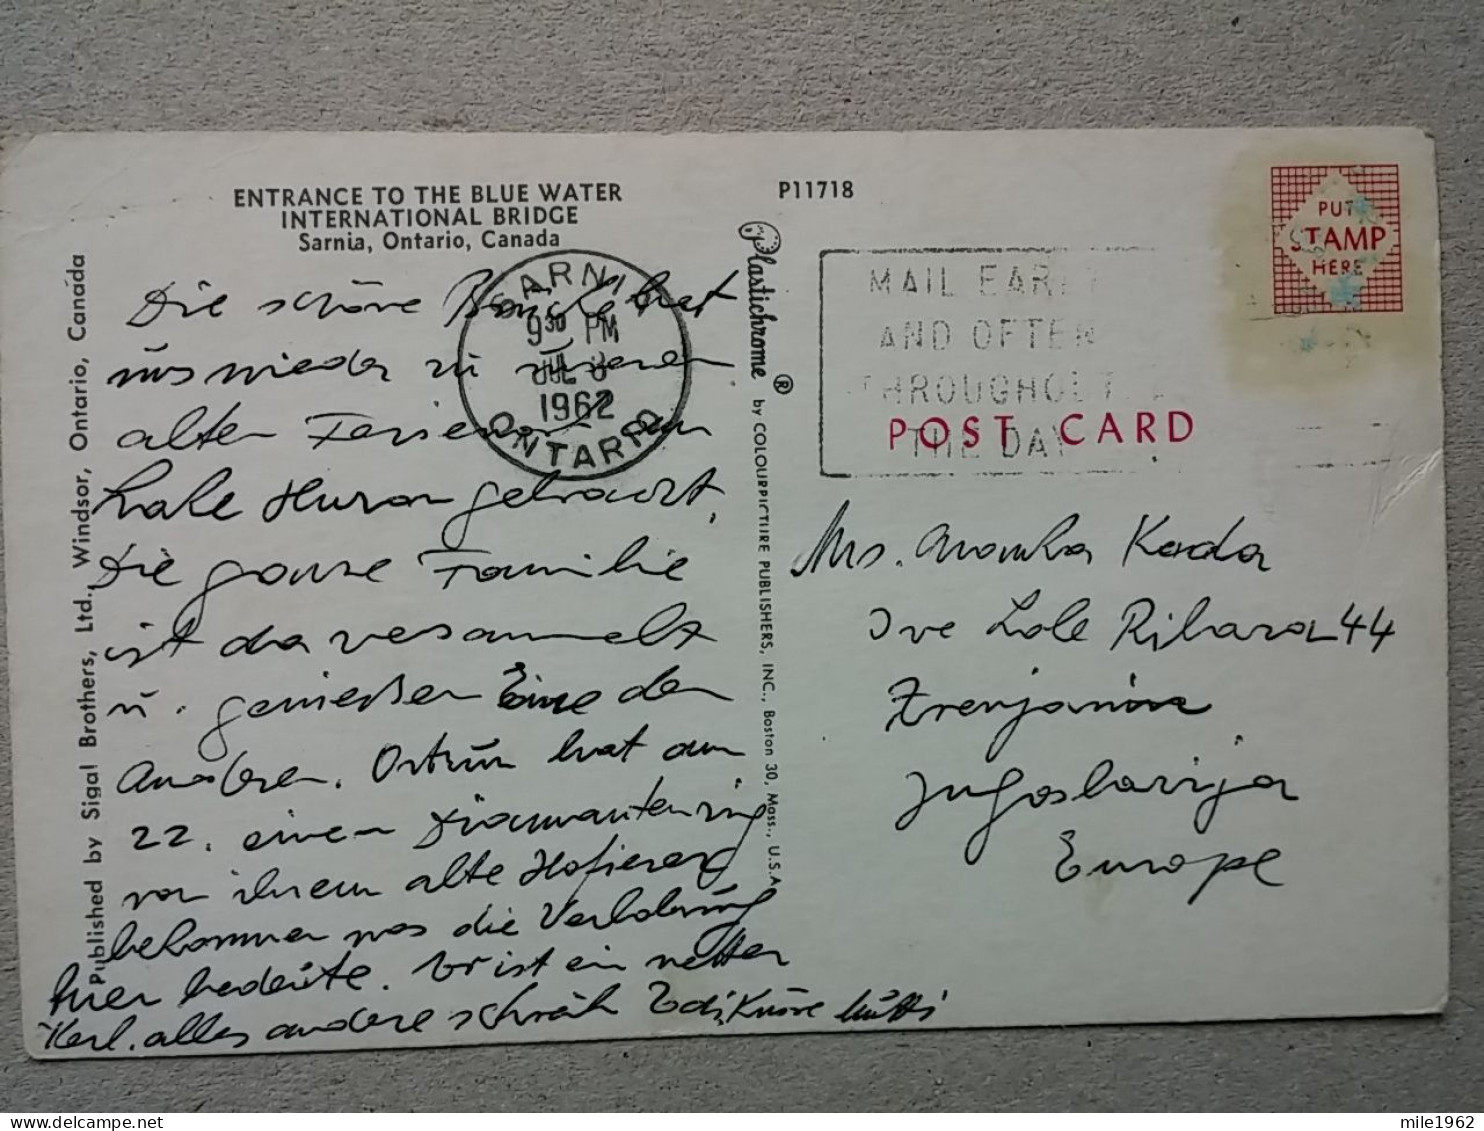 ENTRANCE TO THE BLUE WATER
INTERNATIONAL BRIDGE
Sarnia, Ontario, Canada
P11718
Die schöne Brücke hat
uns wieder zu unseren
alten Ferienort am
Lake Huron gebracht.
Die ganze Familie
ist da versammelt
u. genießen Eine den
Anderen. hat am
22. einen Diamantenring
von ihrem alte
bekommen was die Verlobung
hier bedeute. Er ist ein netter
Kerl. alles andere schreib Edi, Küsse Mutti
SARNIA
9 30 PM
JUL 3
1962
ONTARIO
MAIL EARLY
AND OFTEN
THROUGHOUT
THE DAY
PUT
STAMP
HERE
POST CARD
Mrs. Kada
Ive Lole Ribara 44
Zrenjanin
Jugoslavija
Europe
Published by Sigal Brothers, Ltd. Windsor, Ontario, Canada
Plastichrome ® by COLOURPICTURE PUBLISHERS, INC., Boston 30, Mass., U.S.A.
mile1962